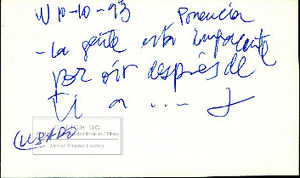 10-10-93 Ponencia
- La gente está impaciente
por oír después de
ti a ....